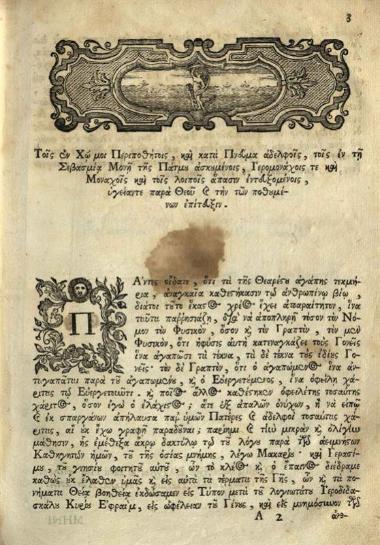 3
Τοῖς ἐν Χῷ μοι Περιποθήτοις, καὶ κατὰ Πνεῦμα ἀδελφοῖς, τοῖς ἐν τῇ
Σεβασμίᾳ Μονῇ τῆς Πάτμου ἀσκουμένοις, Ἱερομονάχοις τε καὶ
Μοναχοῖς καὶ τοῖς λοιποῖς ἅπασιν ἐνταξομένοις,
ὑγείαν τε παρὰ Θεοῦ καὶ τὴν τῶν ποθουμέ-
νων ἐπίταξιν.
Πάντες οἴδατε, ὅτι τὰ τῆς Θεαρέστου ἀγάπης τεκμή-
ρια, ἀναγκαῖα καθέστηκασιν τῷ ἀνθρωπίνῳ βίῳ,
διά τοι τοῦτο ἕκαστος χρέος ἔχει ἀπαραίτητον, ἵνα
ταύτῃ παρρησιάζῃ, διὰ νὰ ἀποπληροῖ τόσον τὸν Νό-
μον τὸν Φυσικὸν, ὅσον καὶ τὸν Γραπτὸν, τὸν μὲν
Φυσικὸν, ὅτι ἡ φύσις αὐτὴ καταναγκάζει τοὺς Γονεῖς
ἵνα ἀγαπῶσι τὰ τέκνα, τὰ δὲ τέκνα τοὺς ἰδίους Γο-
νεῖς· τὸν δὲ Γραπτὸν, ὅτι ὁ ἀγαπώμενος ἵνα ἀν-
τιαγαπᾶται παρὰ τοῦ ἀγαπωμένου, καὶ ὁ Εὐεργετούμενος, ἵνα ὀφείλῃ χάρι-
τας τῷ Εὐεργετοῦντι. καὶ ποῖος ἄλλος καθέστηκεν ὀφειλέτης τοσαύτης
χάριτος, ὅσον ἐγὼ ὁ ἐλάχιστος; ἅτε ἐξ ἁπαλῶν ὀνύχων, ἢ νὰ εἰπῶ
ἐκ σπαργάνων ἀπήλαυσα παρ' ὑμῶν Πατέρες καὶ ἀδελφοὶ τοσαύτας χάρι-
τας, αἳ οὐκ ἔχω γραφῇ παραδοῦναι; παρίημι καὶ τὴν μικρὰν καὶ ὀλίγην
μάθησιν, ἧς ἐμέθεξα ἄκρῳ δακτύλῳ τῷ τοῦ λόγου παρὰ τῶν ἀειμνήστων
Καθηγητῶν ἡμῶν, τῶν τῆς ὁσίας μνήμης, λέγω Μακαρίου καὶ Γερασί-
μου, τοῦ γνησίου φοιτητοῦ αὐτοῦ, ὧν τὸ κλέος καὶ ὁ ἔπαινος διέδραμε
καθὼς οὐκ ἔλαθεν ὑμᾶς καὶ εἰς αὐτὰ τὰ τέρματα τῆς Γῆς, ὧν καὶ τὰ πο-
νήματα Θείᾳ βοηθείᾳ ἐκδώσαμεν εἰς Τύπον μετὰ τοῦ λογιωτάτου Ἱεροδιδα-
σκάλου Κυρίου Ἐφραὶμ, εἰς ὠφέλειαν τοῦ Γένους, καὶ εἰς μνημόσυνον τῶν
A 2